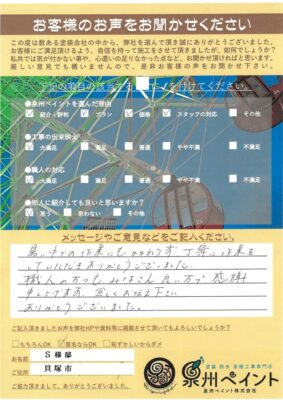 お客様のお声をお聞かせください
この度は数ある塗装会社の中から、弊社を選んで頂き誠にありがとうございました。
お客様にご満足頂けるよう、自信を持って施工をさせて頂きましたが、如何でしょうか?
私共では気が付かない事や、心遣いの足りなかった点など、お聞かせ頂ければと思います。
厳しい意見でも構いませんので、是非お客様の声をお聞かせ下さい。
●泉州ペイントを選んだ理由
紹介・評判 プラン 価格 スタッフの対応 その他
●工事の出来映え
大満足 満足 普通 やや不満 不満足
●職人の対応
大満足 満足 普通 やや不満 不満足
●知人に紹介しても良いと思いますか?
思う 思わない その他
メッセージやご意見などをご記入ください。
暑い中の作業にもかかわらず丁寧に作業を
していただきありがとうございました
職人の方々もみなさん良い方で感謝
申し上げます。
ありがとうございました。
ご記入頂きましたお声を弊社HPや資料等に掲載させて頂いてもよろしいでしょうか?
もちろんOK 匿名ならOK 恥ずかしいからダメ
お名前 S様邸
ご住所 貝塚市
ご協力頂きまして、ありがとうございました。
塗装 防水 屋根工事専門店
泉州ペイント
泉州ペイント株式会社